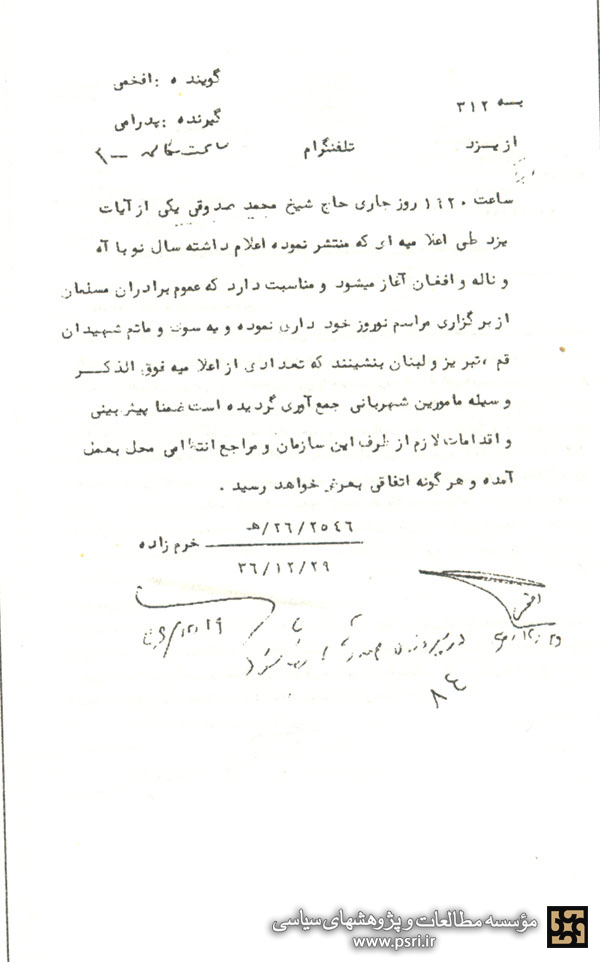 گوینده : افخمی
به ۳۱۲
گیرنده : پدرامی
از یزد
تلفنگرام
ساعت ۱۴۲۰ روز جاری حاج شیخ محمد صدوقی یکی از آیات
یزد طی اعلامیه ای که منتشر نموده اعلام داشته سال نو با آه
و ناله و افغان آغاز میشود و مناسبت دارد که عموم برادران مسلمان
از برگزاری مراسم نوروز خود داری نموده و به سوک و ماتم شهیدان
قم ، تبریز و لبنان بنشینند که تعدادی از اعلامیه فوق الذکر
وسیله مامورین شهربانی جمع آوری گردیده است ضمنا پیش بینی
و اقدامات لازم از طرف این سازمان و مراجع انتظامی محل بعمل
آمده و هر گونه اتفاقی بعرض خواهد رسید .
۲۵۴۶/۲۶/هـ
خرم زاده
۳۶/۱۲/۲۹
۸۴
مؤسسه مطالعات و پژوهشهای سیاسی
www.psri.ir